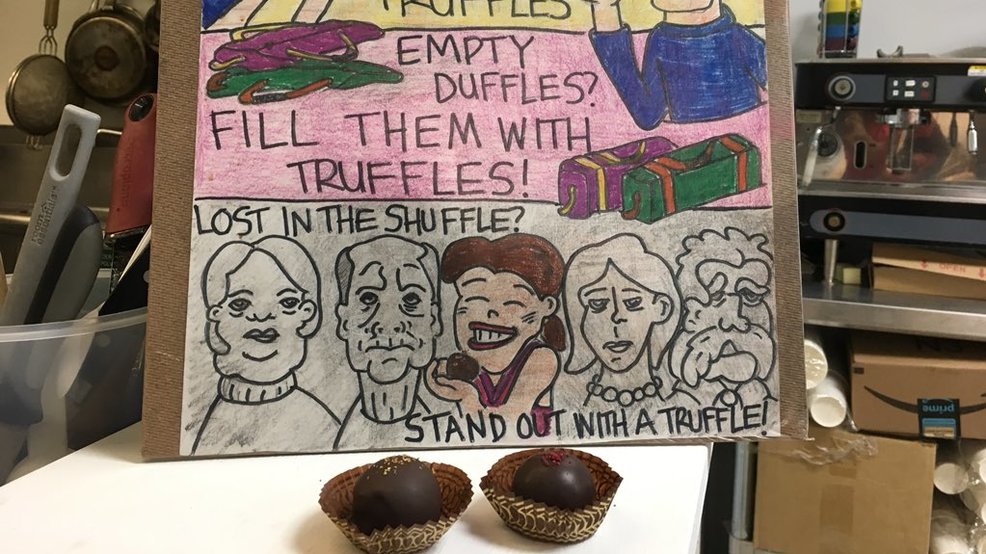 TRUFFLES
EMPTY
DUFFLES?
FILL THEM WITH
TRUFFLES!
LOST IN THE SHUFFLE?
STAND OUT WITH A TRUFFLE!
OPEN
prime